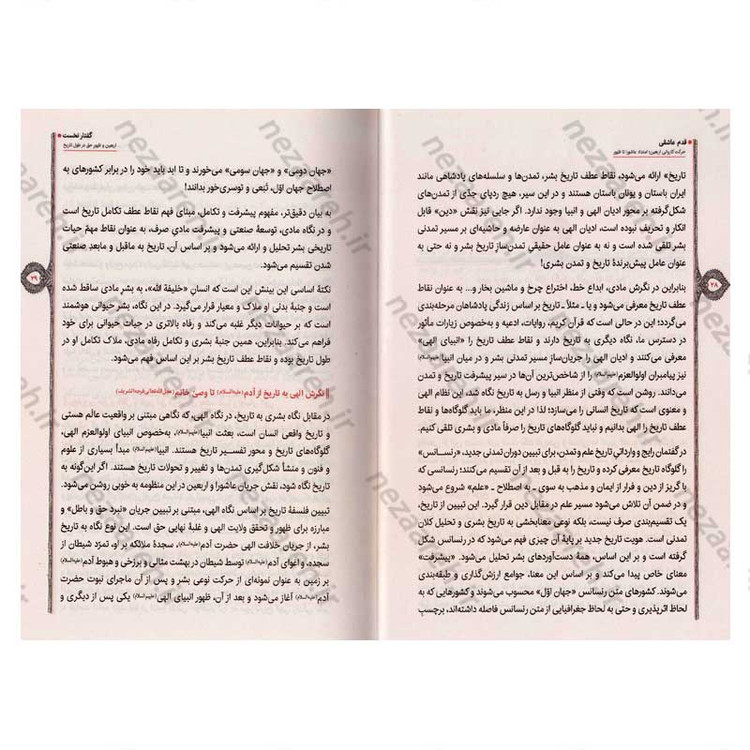 قدم عاشقی
حرکت کاروانی اربعین؛ امتداد عاشورا تا ظهور
۲۸
تاریخ» ارائه می‌شود، نقاط عطف تاریخ بشر، تمدن‌ها و سلسله‌های پادشاهی مانند
ایران باستان و یونان باستان هستند و در این سیر، هیچ ردپای جدّی از تمدن‌های
شکل‌گرفته بر محور ادیان الهی و انبیا وجود ندارد. اگر جایی نیز نقش «دین» قابل
انکار و تحریف نبوده است، ادیان الهی به عنوان عارضه و حاشیه‌ای بر مسیر تمدنی
بشر تلقی شده است و نه به عنوان عامل حقیقیِ تمدن‌ساز تاریخ بشر و نه حتی به
عنوان عامل پیش‌برندهٔ تاریخ و تمدن بشری!
بنابراین در نگرش مادی، ابداع خط، اختراع چرخ و ماشین بخار و... به عنوان نقاط
عطف تاریخ معرفی می‌شود و یا ـ مثلاً ـ تاریخ بر اساس زندگی پادشاهان مرحله‌بندی
می‌گردد؛ این در حالی است که قرآن کریم، روایات، ادعیه و به‌خصوص زیارات مأثور
در دسترس ما، نگاه دیگری به تاریخ دارند و نقاط عطف تاریخ را «انبیای الهی»
معرفی می‌کنند و ادیان الهی را جریان‌سازِ مسیر تمدنی بشر و در میان انبیا
نیز پیامبران اولوالعزم را از شاخص‌ترین آن‌ها در سیر پیشرفت تاریخ و تمدن
می‌دانند. روشن است که وقتی از منظر انبیا و رسل به تاریخ نگاه شد، این نظام الهی
و معنوی است که تاریخ انسانی را می‌سازد؛ لذا در این منظر، ما باید گلوگاه‌ها و نقاط
عطف تاریخ را الهی بدانیم و نباید گلوگاه‌های تاریخ را صرفاً مادی و بشری تلقی کنیم.
در گفتمان رایج و وارداتیِ تاریخ علم و تمدن، برای تبیین دوران تمدنی جدید، «رنسانس» را
گلوگاه تاریخ معرفی کرده و تاریخ را به قبل و بعد از آن تقسیم می‌کنند؛ رنسانسی که
با گریز از دین و فرار از ایمان و مذهب به سوی ـ به اصطلاح ـ «علم» شروع می‌شود
و در ضمن آن تلاش می‌شود مسیر علم در مقابل دین قرار گیرد. این تبیین از تاریخ،
یک تقسیم‌بندی صرف نیست، بلکه نوعی معنابخشی به تاریخ بشری و تحلیل کلان
تمدنی است. هویت تاریخ جدید بر پایهٔ آن چیزی فهم می‌شود که در رنسانس شکل
گرفته است و بر این اساس، همهٔ دست‌آوردهای بشر تحلیل می‌شود. «پیشرفت»
معنای خاص پیدا می‌کند و بر اساس این معنا، جوامع ارزش‌گذاری و طبقه‌بندی
می‌شوند. کشورهای متن رنسانس «جهان اوّل» محسوب می‌شوند و کشورهایی که به
لحاظ اثرپذیری و حتی به لحاظ جغرافیایی از متن رنسانس فاصله داشته‌اند، برچسبِ
گفتار نخست
اربعین و ظهور حق در طول تاریخ
۲۹
«جهان دومی» و «جهان سومی» می‌خورند و تا ابد باید خود را در برابر کشورهای به
اصطلاح جهان اوّل، تَبَعی و توسری‌خور بدانند!
به بیان دقیق‌تر، مفهوم پیشرفت و تکامل، مبنای فهم نقاط عطف تکامل تاریخ است
و در نگاه مادی، توسعهٔ صنعتی و پیشرفت مادیِ صرف، به عنوان نقاط مهمّ حیات
تاریخی بشر تحلیل و ارائه می‌شود و بر اساس آن، تاریخ به ماقبل و مابعدِ صنعتی
شدن تقسیم می‌شود.
نکتهٔ اساسی این بینش این است که انسان «خلیفة الله»، به بشر مادی ساقط شده
است و جنبهٔ بدنی او ملاک و معیار قرار می‌گیرد. در این نگاه، بشر حیوانی هوشمند
است که بر حیوانات دیگر غلبه می‌کند و رفاه بالاتری در حیات حیوانی برای خود
فراهم می‌کند. بنابراین، همین جنبهٔ بشری و تکامل رفاه مادی، ملاک تکامل او در
طول تاریخ بوده و نقاط عطف تاریخ بشر بر این اساس فهم می‌شود.
نگرش الهی به تاریخ از آدم (علیه‌السلام) تا وصیّ خاتم (عجل‌الله‌تعالی‌فرجه‌الشریف)
در مقابل نگاه بشری به تاریخ، در نگاه الهی، که نگاهی مبتنی بر واقعیت عالَم هستی
و تاریخ واقعی انسان است، بعثت انبیا، به‌خصوص انبیای اولوالعزم الهی،
گلوگاه‌های تاریخ و محور تفسیر تاریخ هستند. انبیا مبدأ بسیاری از علوم
و فنون و منشأ شکل‌گیری تمدن‌ها و تغییر و تحولات تاریخ هستند. اگر این‌گونه به
تاریخ نگاه شود، نقش جریان عاشورا و اربعین در این منظومه به خوبی روشن می‌شود.
تبیین فلسفهٔ تاریخ بر اساس نگاه الهی، مبتنی بر تبیین جریان «نبرد حق و باطل» و
مبارزه برای ظهور و تحقق ولایت الهی و غلبهٔ نهایی حق است. این نوع نگاه به تاریخ
بشر، از جریان خلافت الهی حضرت آدم (علیه‌السلام)، سجدهٔ ملائکه بر او، تمرّد شیطان از
سجده، و اغوای آدم (علیه‌السلام) توسط شیطان در بهشت مثالی و برزخی و هبوط آدم
بر زمین به عنوان نمونه‌ای از حرکت نوعی بشر و پس از آن ماجرای نبوت حضرت
آدم (علیه‌السلام) آغاز می‌شود و بعد از آن، ظهور انبیای الهی یکی پس از دیگری و
nezaareh.ir